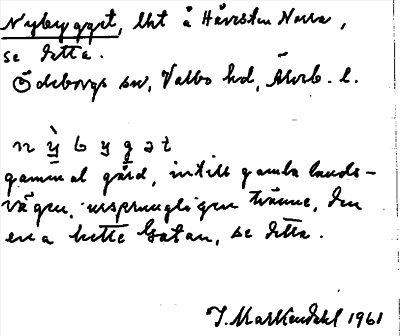 Nybygget, lht å Håvesten Norra,
se detta.
Ödeborgs sn, Valbo hd, Älvsb. l.
n ỳ̠ b y g ə t
gammal gård, intill gamla lands-
vägen, ursprungligen tvänne, den
ena hette Gatan, se detta.
J. Markendahl 1961